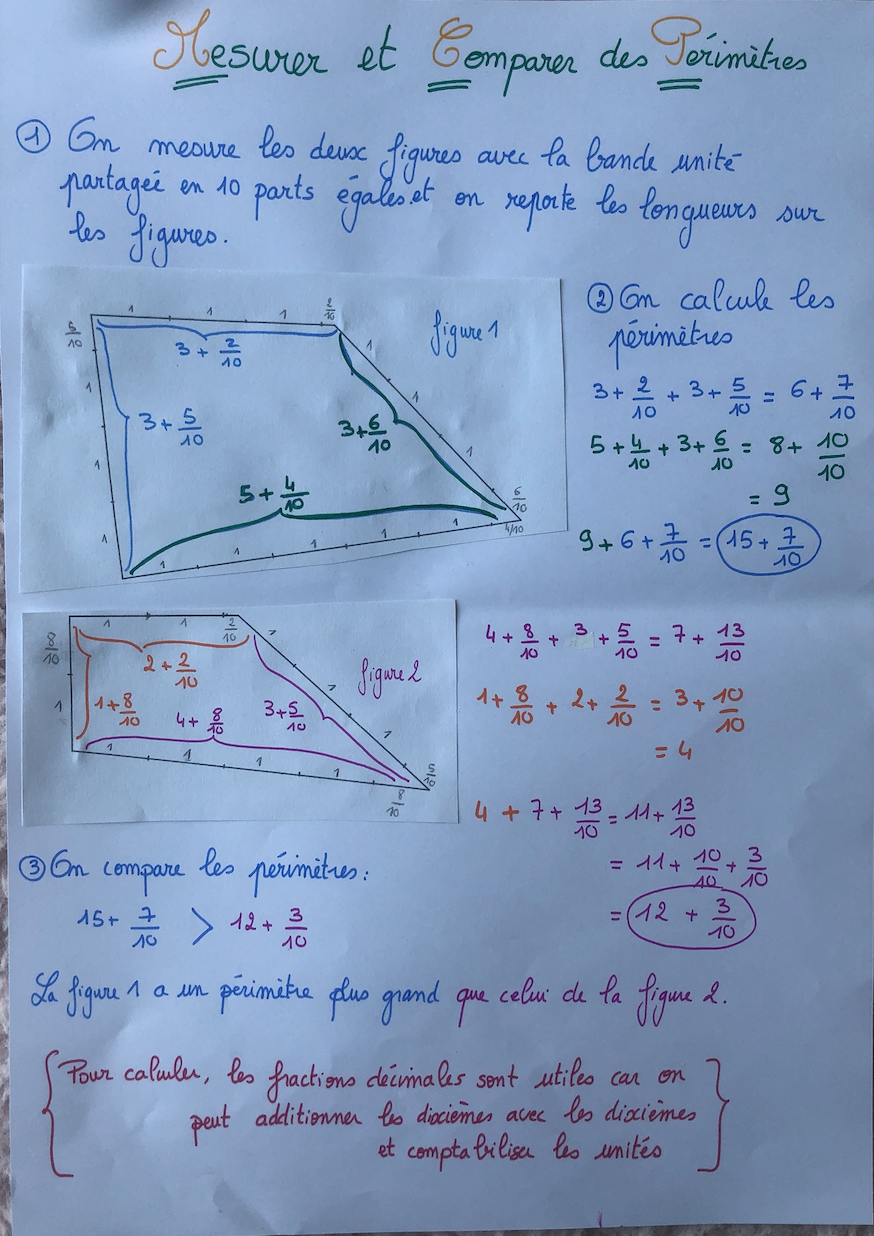 Mesurer et Comparer des Périmètres
① On mesure les deux figures avec la bande unité
partagée en 10 parts égales et on reporte les longueurs sur
les figures.
1 1 1 2/10
5/10
figure 1
3 + 2/10
1
1
1
3 + 5/10
3 + 6/10
1
1
1
5 + 4/10
6/10
4/10
1 1 1 1 1
② On calcule les
périmètres
3 + 2/10 + 3 + 5/10 = 6 + 7/10
5 + 4/10 + 3 + 6/10 = 8 + 10/10
= 9
9 + 6 + 7/10 = 15 + 7/10
1 1 2/10
8/10
1
2 + 2/10
figure 2
1 + 8/10
4 + 8/10
3 + 5/10
1
1
1
1 1 1 1
8/10
5/10
4 + 8/10 + 3 + 5/10 = 7 + 13/10
1 + 8/10 + 2 + 2/10 = 3 + 10/10
= 4
4 + 7 + 13/10 = 11 + 13/10
= 11 + 10/10 + 3/10
= 12 + 3/10
③ On compare les périmètres :
15 + 7/10 > 12 + 3/10
La figure 1 a un périmètre plus grand que celui de la figure 2.
Pour calculer, les fractions décimales sont utiles car on
peut additionner les dixièmes avec les dixièmes
et comptabiliser les unités